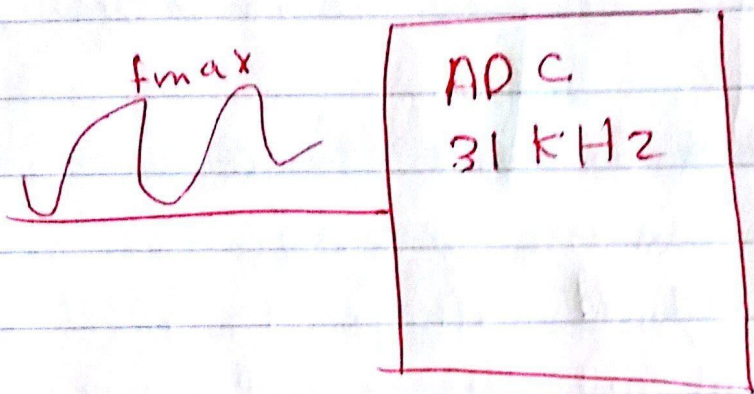 fmax
ADC
31 KHz